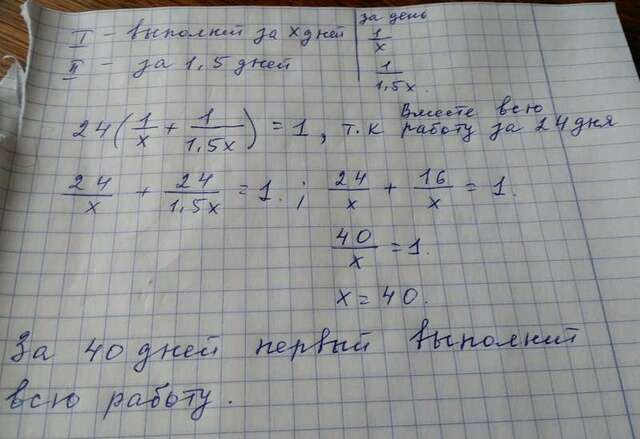 I - выполнит за x дней
II - за 1,5 дней
за день
1/x
1/1,5x.
24(1/x + 1/1,5x) = 1, т.к Вместе всю работу за 24 дня
24/x + 24/1,5x = 1. ; 24/x + 16/x = 1.
40/x = 1.
x = 40.
За 40 дней первый выполнит
всю работу.